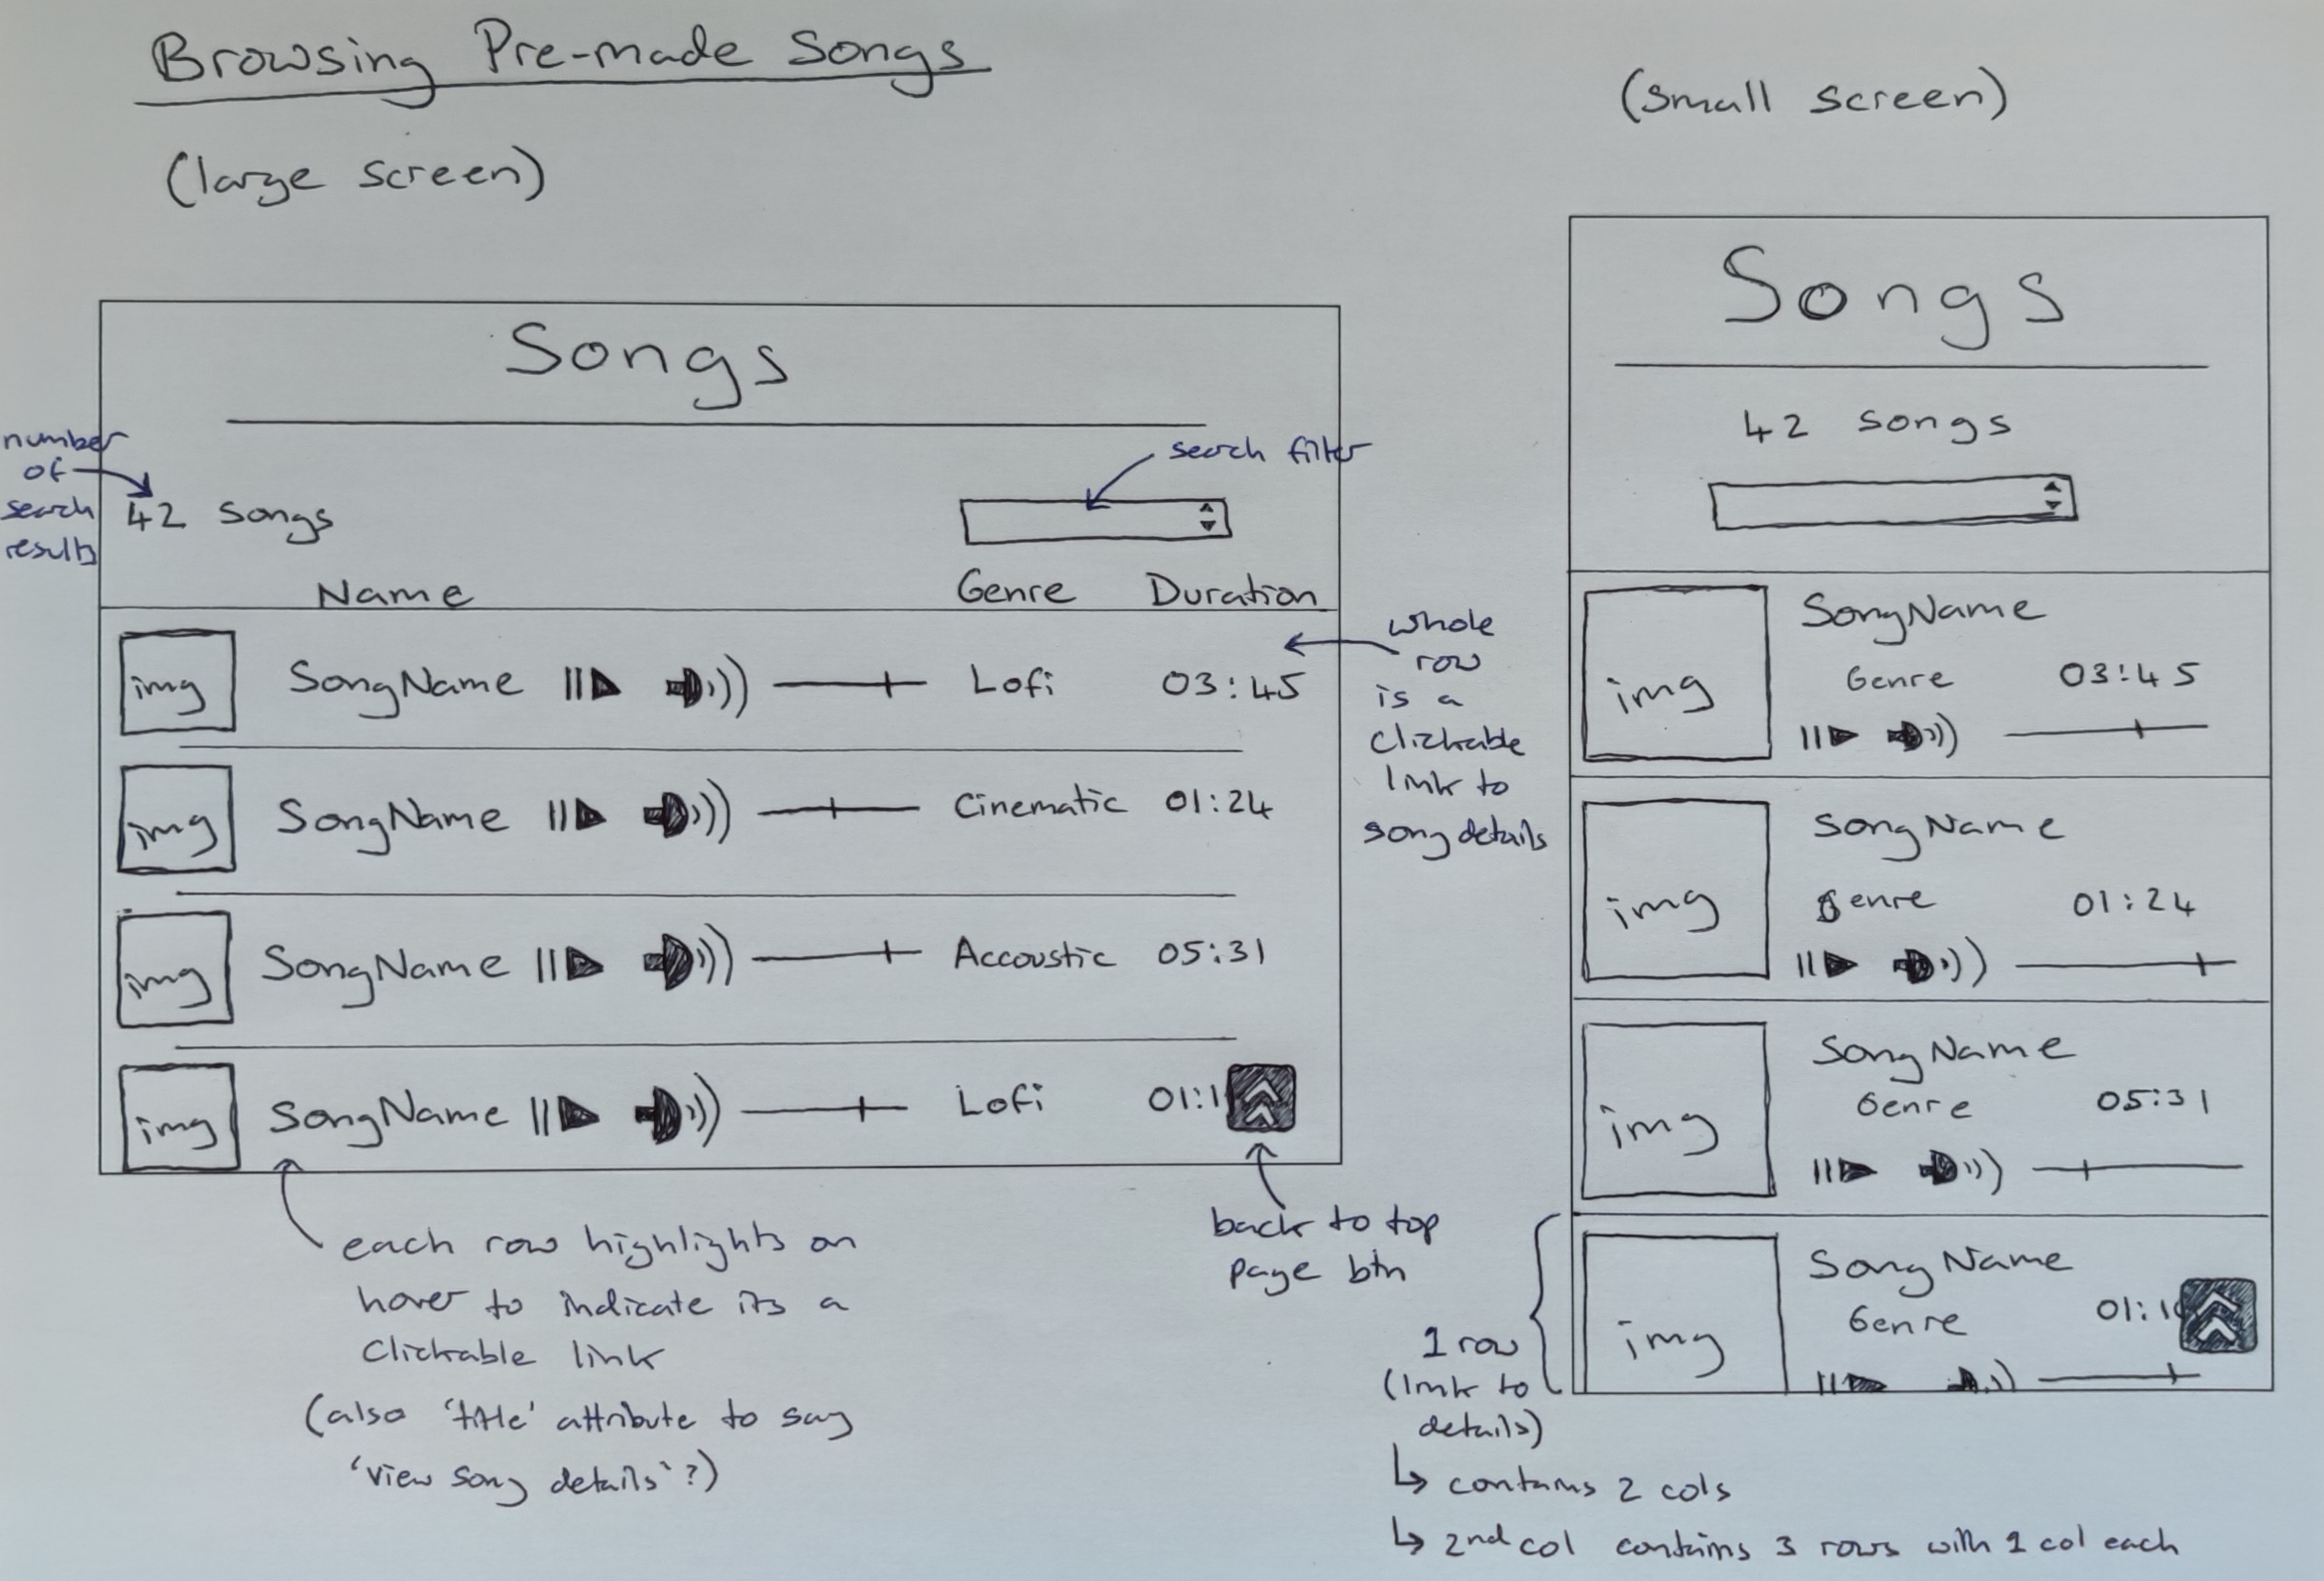 Browsing Pre-made Songs
(large screen)
Songs
number
of
search
results
search filter
42 songs
Name Genre Duration
img SongName Lofi 03:45
img SongName Cinematic 01:24
img SongName Accoustic 05:31
img SongName Lofi 01:1
whole
row
is a
clickable
link to
song details
each row highlights on
hover to indicate its a
clickable link
(also 'title' attribute to say
'view song details'?)
back to top
page btn
(small screen)
Songs
42 songs
SongName
img Genre 03:45
SongName
img Genre 01:24
SongName
img Genre 05:31
SongName
img Genre 01:1
1 row
(link to
details)
↳ contains 2 cols
↳ 2nd col contains 3 rows with 1 col each